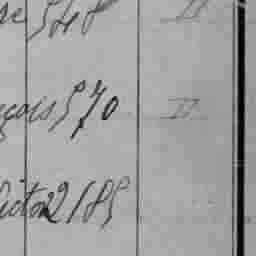 re 548 II
çois 570 II
ictor 2185